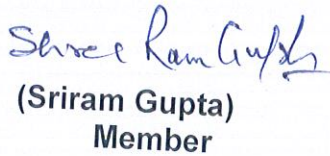 Shree Ram Gupta
(Sriram Gupta)
Member